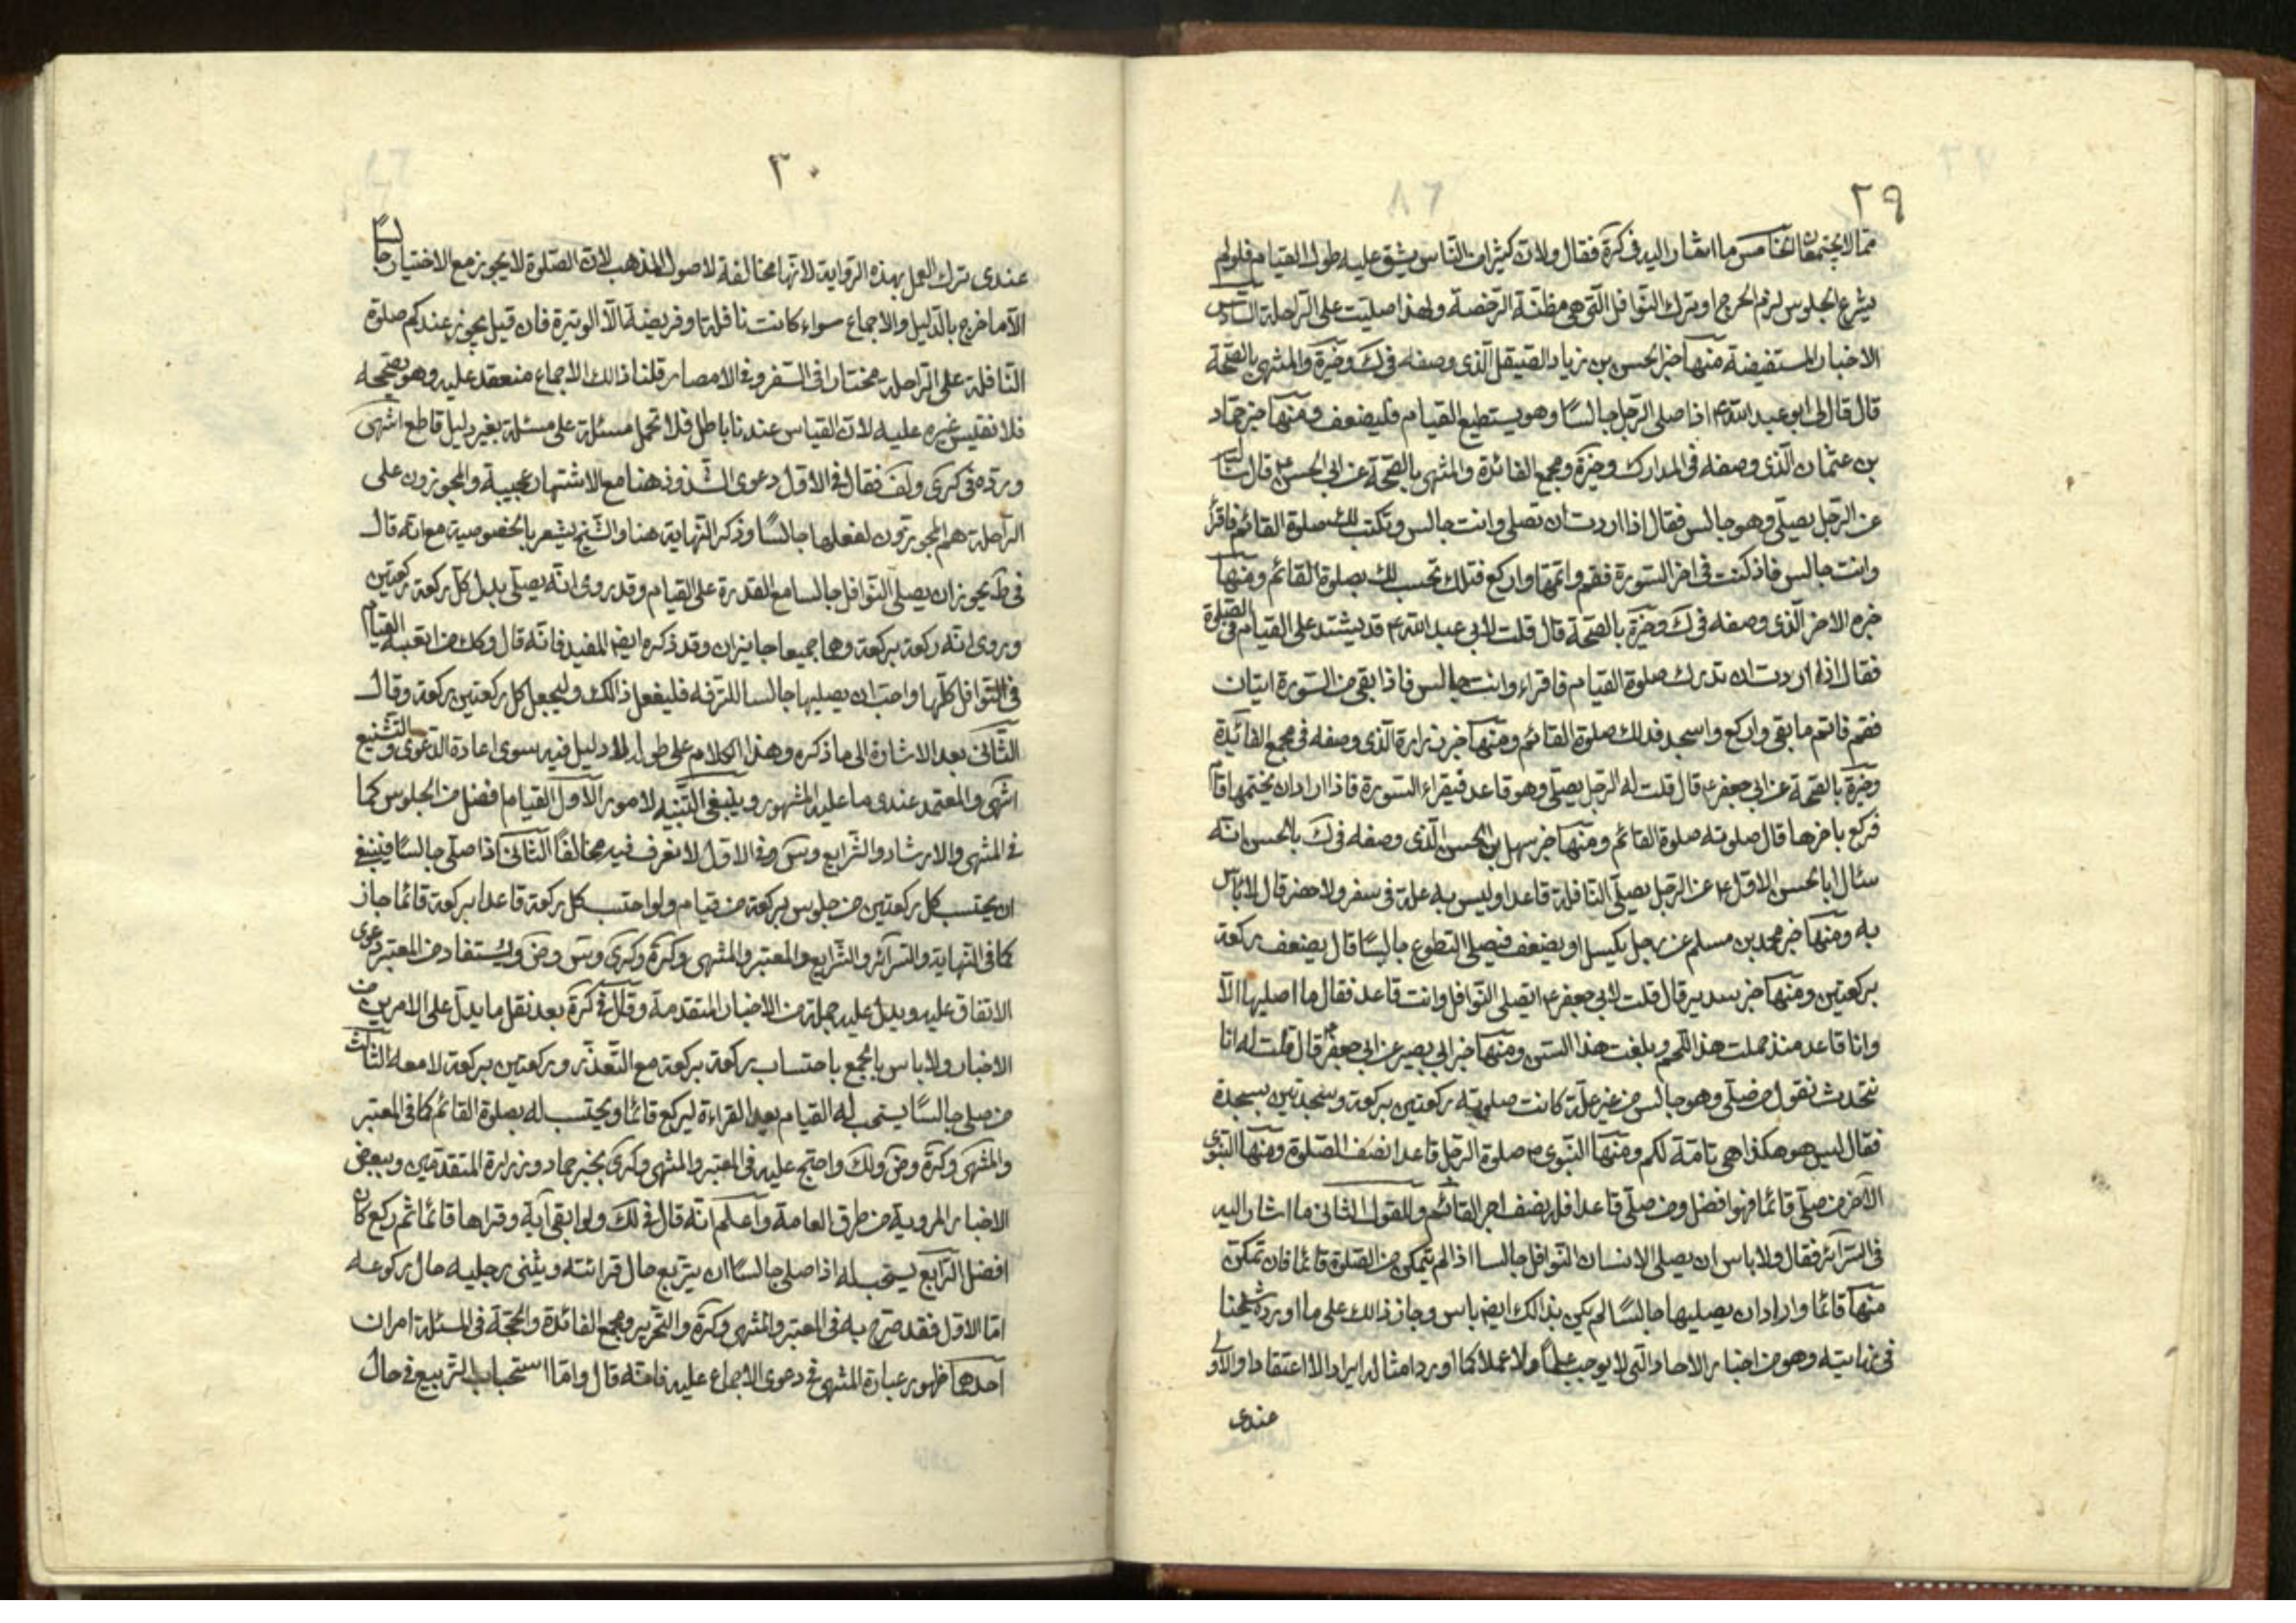 ٢٩
مما لا يجتمعان الخامس ما اشار اليه في كرة فقال ولان كثيرا من الناس يشق عليه طول القيام فلو لم
يشرع الجلوس لزم الحرج او ترك النوافل التي هي مظنة الرخصة ولهذا صليت على الراحلة السادس
الاخبار المستفيضة منها خبر الحسن بن زياد الصيقل الذي وصفه في ك وخيرة والمنتهى بالصحة
قال قال لي ابو عبد الله ع اذا صلى الرجل جالسا وهو يستطيع القيام فليضعف ومنها خبر حماد
بن عثمان الذي وصفه في المدارك وخيرة ومجمع الفائدة والمنتهى بالصحة عن ابي الحسن ع قال سالته
عن الرجل يصلي وهو جالس فقال اذا اردت ان تصلي وانت جالس وتكتب لك صلوة القائم فاقرأ
وانت جالس فاذ كنت في اخر السورة فقم واتمها واركع فتلك تحسب لك بصلوة القائم ومنها
خبره الاخر الذي وصفه في ك وخيرة بالصحة قال قلت لابي عبد الله ع قد يشتد علي القيام في الصلوة
فقال اذا اردت ان تدرك صلوة القيام فاقراء وانت جالس فاذا بقي من السورة ايتان
فقم فاتم ما بقي واركع واسجد فذلك صلوة القائم ومنها خبر زرارة الذي وصفه في مجمع الفائدة
وخيرة بالصحة عن ابي جعفر ع قال قلت له الرجل يصلي وهو قاعد فيقراء السورة فاذا اراد ان يختمها قام
فركع باخرها قال صلوته صلوة القائم ومنها خبر سهل بن الحسن الذي وصفه في ك بالحسن انه
سئال ابا الحسن الاول ع عن الرجل يصلي النافلة قاعدا وليس به علة في سفر ولا حضر قال لا باس
به ومنها خبر محمد بن مسلم عن رجل يكسل او يضعف فيصلي التطوع جالسا قال يضعف ركعة
بركعتين ومنها خبر سدير قال قلت لابي جعفر ع اتصلي النوافل وانت قاعد فقال ما اصليها الا
وانا قاعد منذ حملت هذا اللحم وبلغت هذا السن ومنها خبر ابي بصير عن ابي جعفر ع قال قلت له انا
نتحدث نقول من صلى وهو جالس من غير علة كانت صلوته ركعتين بركعة وسجدتين بسجدة
فقال ليس هو هكذا هي تامة لكم ومنها النبوي ص صلوة الرجل قاعدا نصف الصلوة ومنها النبوي
الآخر من صلى قائما فهو افضل ومن صلى قاعدا فله نصف اجر القائم وللقول الثاني ما اشار اليه
في السرائر فقال ولا باس ان يصلي الانسان النوافل جالسا اذا لم يتمكن من الصلوة قائما فان تمكن
منها قائما واراد ان يصليها جالسا لم يكن بذالك ايضا باس وجاز ذالك على ما اورده شيخنا
في نهايته وهو من اخبار الاحاد التي لا يوجب علما ولا عملا كما اورد امثاله ايرادا لا اعتقادا والاولى
عندي
٣٠
عندي ترك العمل بهذه الرواية لانها مخالفة لاصول المذهب لان الصلوة لا يجوز مع الاختيار جالسا
الا ما خرج بالدليل والاجماع سواء كانت نافلة او فريضة الا الوتيرة فان قيل يجوز عندكم صلوة
النافلة على الراحلة مختارا في السفر وفي الامصار قلنا ذالك الاجماع منعقد عليه وهو يصححه
فلا نقيس غيره عليه لان القياس عندنا باطل فلا تحمل مسئلة على مسئلة بغير دليل قاطع انتهى
ورده في كرى ولف فقال في الاول دعوى الشذوذ هنا مع الاشتهار عجيبة والمجوزون على
الراحلة هم المجوزون لفعلها جالسا وذكر النهاية هنا والشيخ يشعر بالخصوصية مع انه قال
في ط يجوز ان يصلي النوافل جالسا مع القدرة على القيام وقد روي انه يصلي بدل كل ركعة ركعتين
وروي انه ركعة بركعة وهما جميعا جايزان وقد ذكره ايضا المفيد فانه قال وكل من اتعبه القيام
في النوافل كلها واحب ان يصليها جالسا للترفه فليفعل ذالك وليجعل كل ركعتين بركعة وقال
الثاني بعد الاشارة الى ما ذكره وهذا الكلام على طوله لا دليل فيه سوى اعادة الدعوى والتشنيع
انتهى والمعتمد عندي ما عليه المشهور وينبغي التنبيه لامور الاول القيام افضل من الجلوس كما
في المنتهى والارشاد والشرايع وس وفي الاول لا نعرف فيه مخالفا الثاني اذا صلى جالسا فينبغي
ان يحتسب كل ركعتين من جلوس بركعة من قيام ولو احتسب كل ركعة قاعدا بركعة قائما جاز
كما في النهاية والسرائر والشرايع والمعتبر والمنتهى وكرة وكرى وس وض ويستفاد من المعتبر دعوى
الاتفاق عليه ويدل عليه جملة من الاخبار المتقدمة وقال في كرة بعد نقل ما يدل على الامرين من
الاخبار ولا باس بالجمع باحتساب ركعة بركعة مع التعذر وركعتين بركعة لا معه الثالث
من صلى جالسا يستحب له القيام بعد القراءة ليركع قائما ويحتسب له بصلوة القائم كما في المعتبر
والمنتهى وكرة وض وك واحتج عليه في المعتبر والمنتهى وكرى بخبر حماد وزرارة المتقدمين وببعض
الاخبار المروية من طرق العامة واعلم انه قال في لك ولو ابقى آية وقراها قائما ثم ركع كان
افضل الرابع يستحب له اذا صلى جالسا ان يتربع حال قرائته ويثني رجليه حال ركوعه
اما الاول فقد صرح به في المعتبر والمنتهى وكرة والتحرير ومجمع الفائدة والحجة في المسئلة امران
احدهما ظهور عبارة المنتهى في دعوى الاجماع عليه فانه قال واما استحباب التربيع في حال